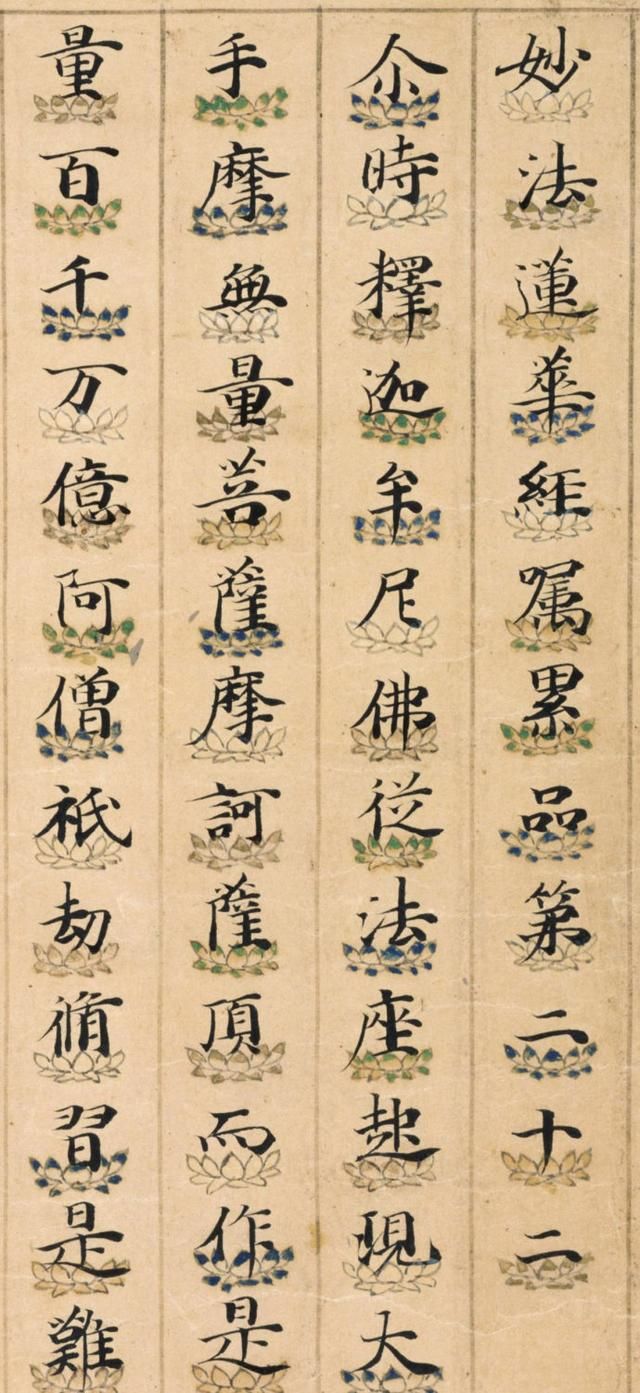 妙法蓮華經囑累品第二十二
尒時釋迦牟尼佛從法座起現大
手摩無量菩薩摩訶薩頂而作是
量百千万億阿僧祇劫脩習是難